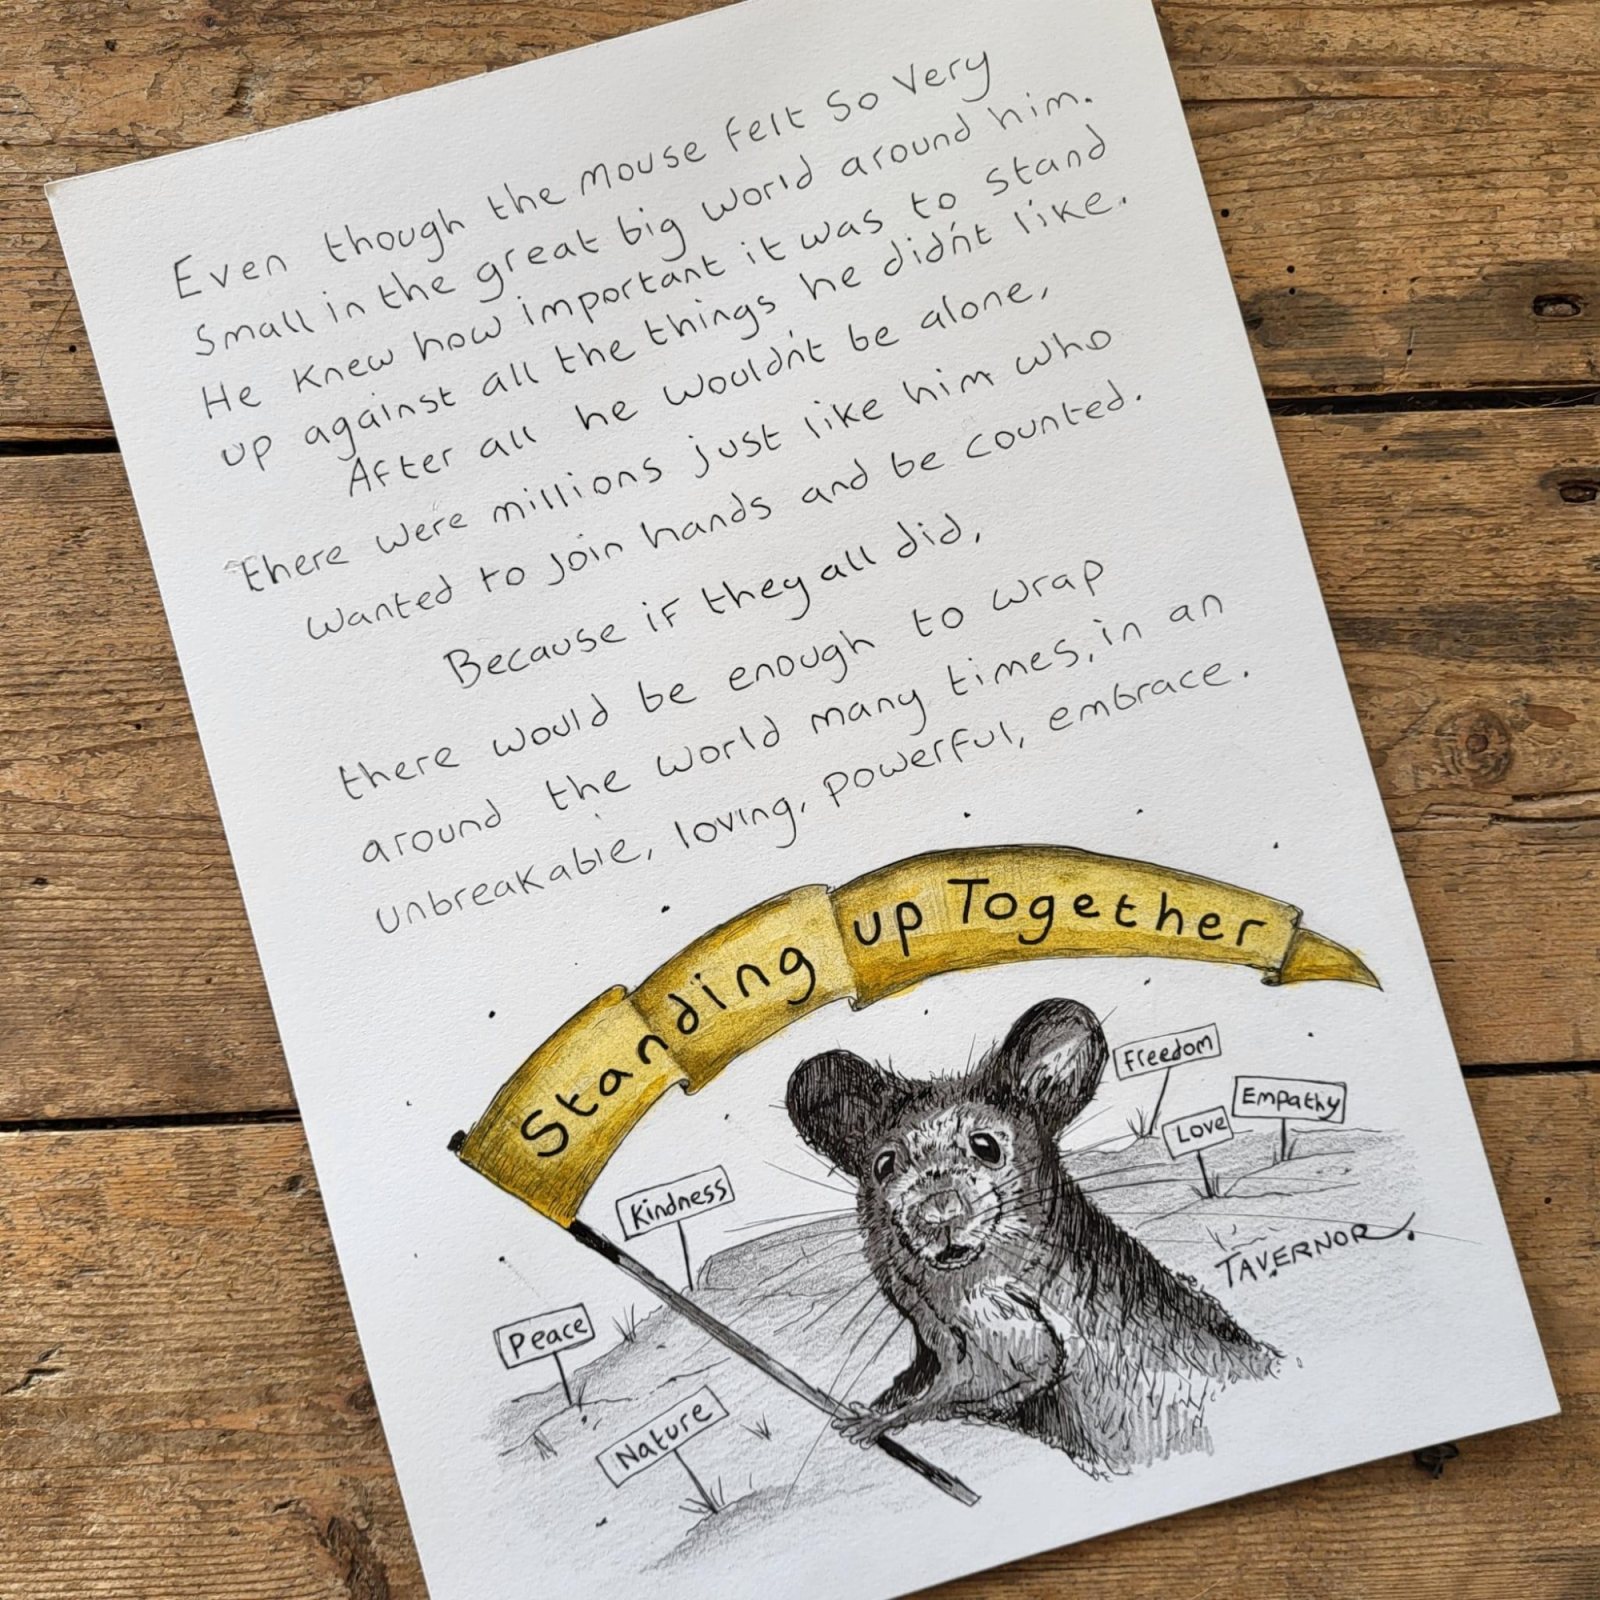 Even though the mouse felt so very
small in the great big world around him.
He knew how important it was to stand
up against all the things he didn't like.
After all he wouldn't be alone,
there were millions just like him who
wanted to join hands and be counted.
Because if they all did,
there would be enough to wrap
around the world many times, in an
unbreakable, loving, powerful, embrace.
Standing up Together
Freedom
Empathy
Love
Kindness
TAVERNOR.
Peace
Nature